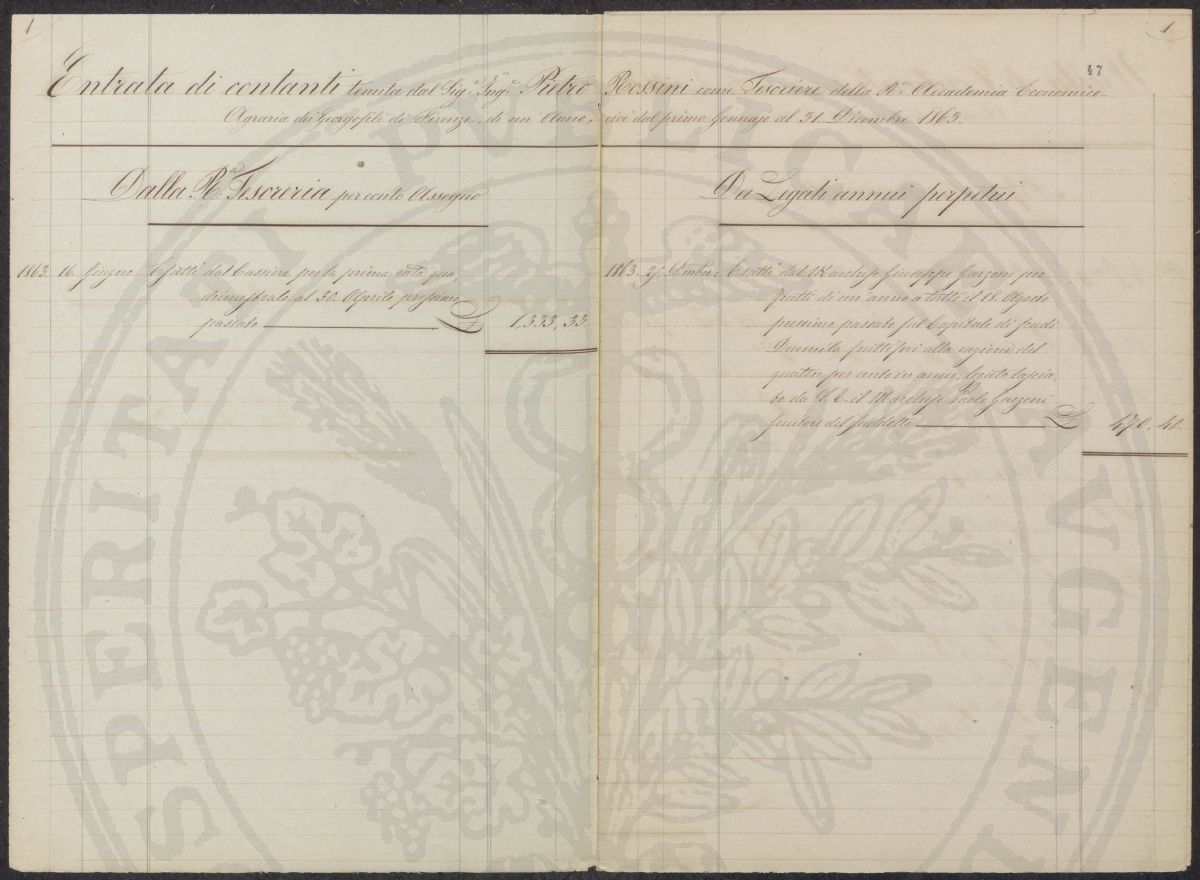 1
1
47
Entrata di contanti tenuta dal Sig.r Ing.re Pietro Rossini come Tesoriere della R.a Accademia Economico-
Agraria dei Georgofili di Firenze, di un Anno, cioè dal primo Gennajo al 31. Dicembre 1863.
Dalla R.a Tesoreria per conto Assegno
1863. 16. Giugno Esatti dal Cassiere per la prima rata qua,
drimestrale al 30. Aprile prossimo
passato £ 1,333, 33.
Da Legati annui perpetui
1863. Esatti dal Marchese Giuseppe Garzoni per
frutti di un'anno a tutto il 18. Agosto
prossimo passato sul Capitale di scudi
Duemila fruttiferi alla ragione del
quattro per cento in anno, Legato lascia,
to da S. E. il Marchese Paolo Garzoni
genitore del suddetto £ 470, 40.
PROSPERITATI PUBLICAE AVGENDAE